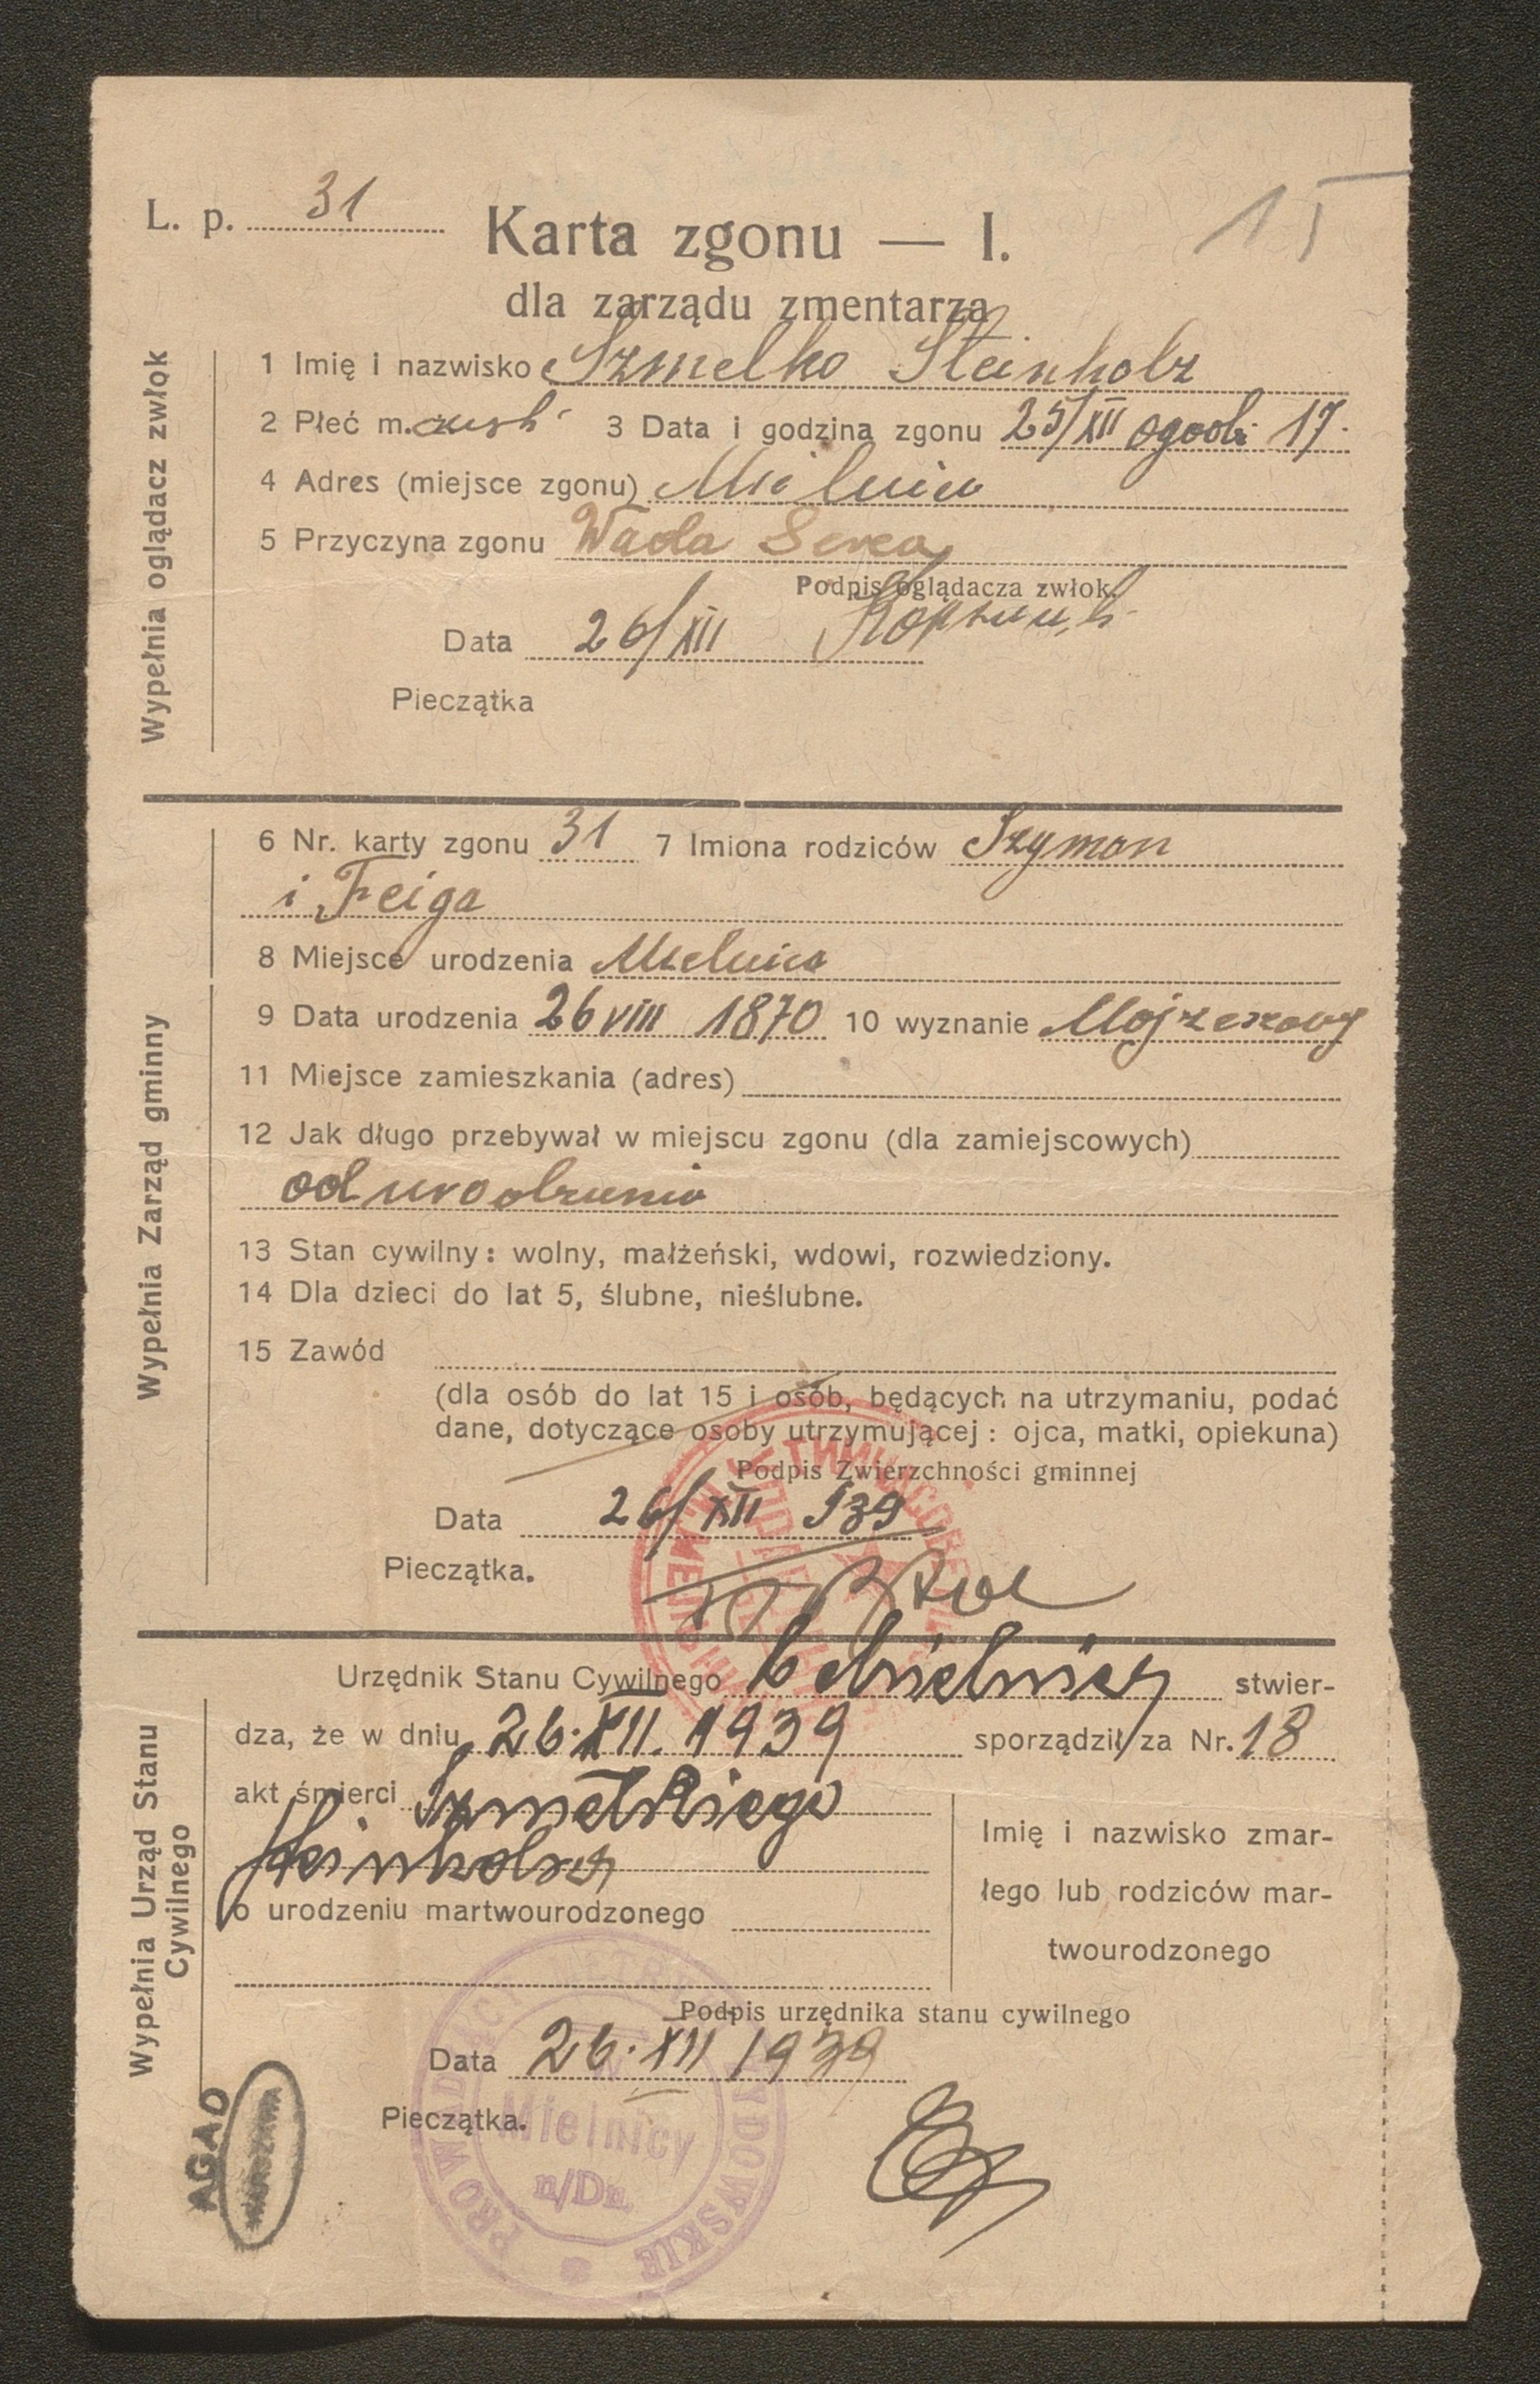 L. p. 31
Karta zgonu — I.
dla zarządu zmentarza
Wypełnia oglądacz zwłok
1 Imię i nazwisko Szmelko Steinholz
2 Płeć m. 3 Data i godzina zgonu 25/XII o godz 17.
4 Adres (miejsce zgonu) Mielnica
5 Przyczyna zgonu Wada Serca
Podpis oglądacza zwłok.
Data 26/XII
Pieczątka
Wypełnia Zarząd gminny
6 Nr. karty zgonu 31 7 Imiona rodziców Szymon
i Feiga
8 Miejsce urodzenia Mielnica
9 Data urodzenia 26 VIII 1870 10 wyznanie Mojżeszowy
11 Miejsce zamieszkania (adres)
12 Jak długo przebywał w miejscu zgonu (dla zamiejscowych)
od urodzenia
13 Stan cywilny: wolny, małżeński, wdowi, rozwiedziony.
14 Dla dzieci do lat 5, ślubne, nieślubne.
15 Zawód
(dla osób do lat 15 i osób, będących na utrzymaniu, podać
dane, dotyczące osoby utrzymującej: ojca, matki, opiekuna)
Podpis Zwierzchności gminnej
Data 26/XII 939
Pieczątka.
Wypełnia Urząd Stanu
Cywilnego
Urzędnik Stanu Cywilnego w Mielnicy stwier-
dza, że w dniu 26.XII.1939 sporządził za Nr. 18
akt śmierci Szmelkiego
Steinholza
o urodzeniu martwourodzonego
Imię i nazwisko zmar-
łego lub rodziców mar-
twourodzonego
Podpis urzędnika stanu cywilnego
Data 26.XII 1939
Pieczątka.
Mielnicy
n/Dn.
AGAD
WARSZAWA